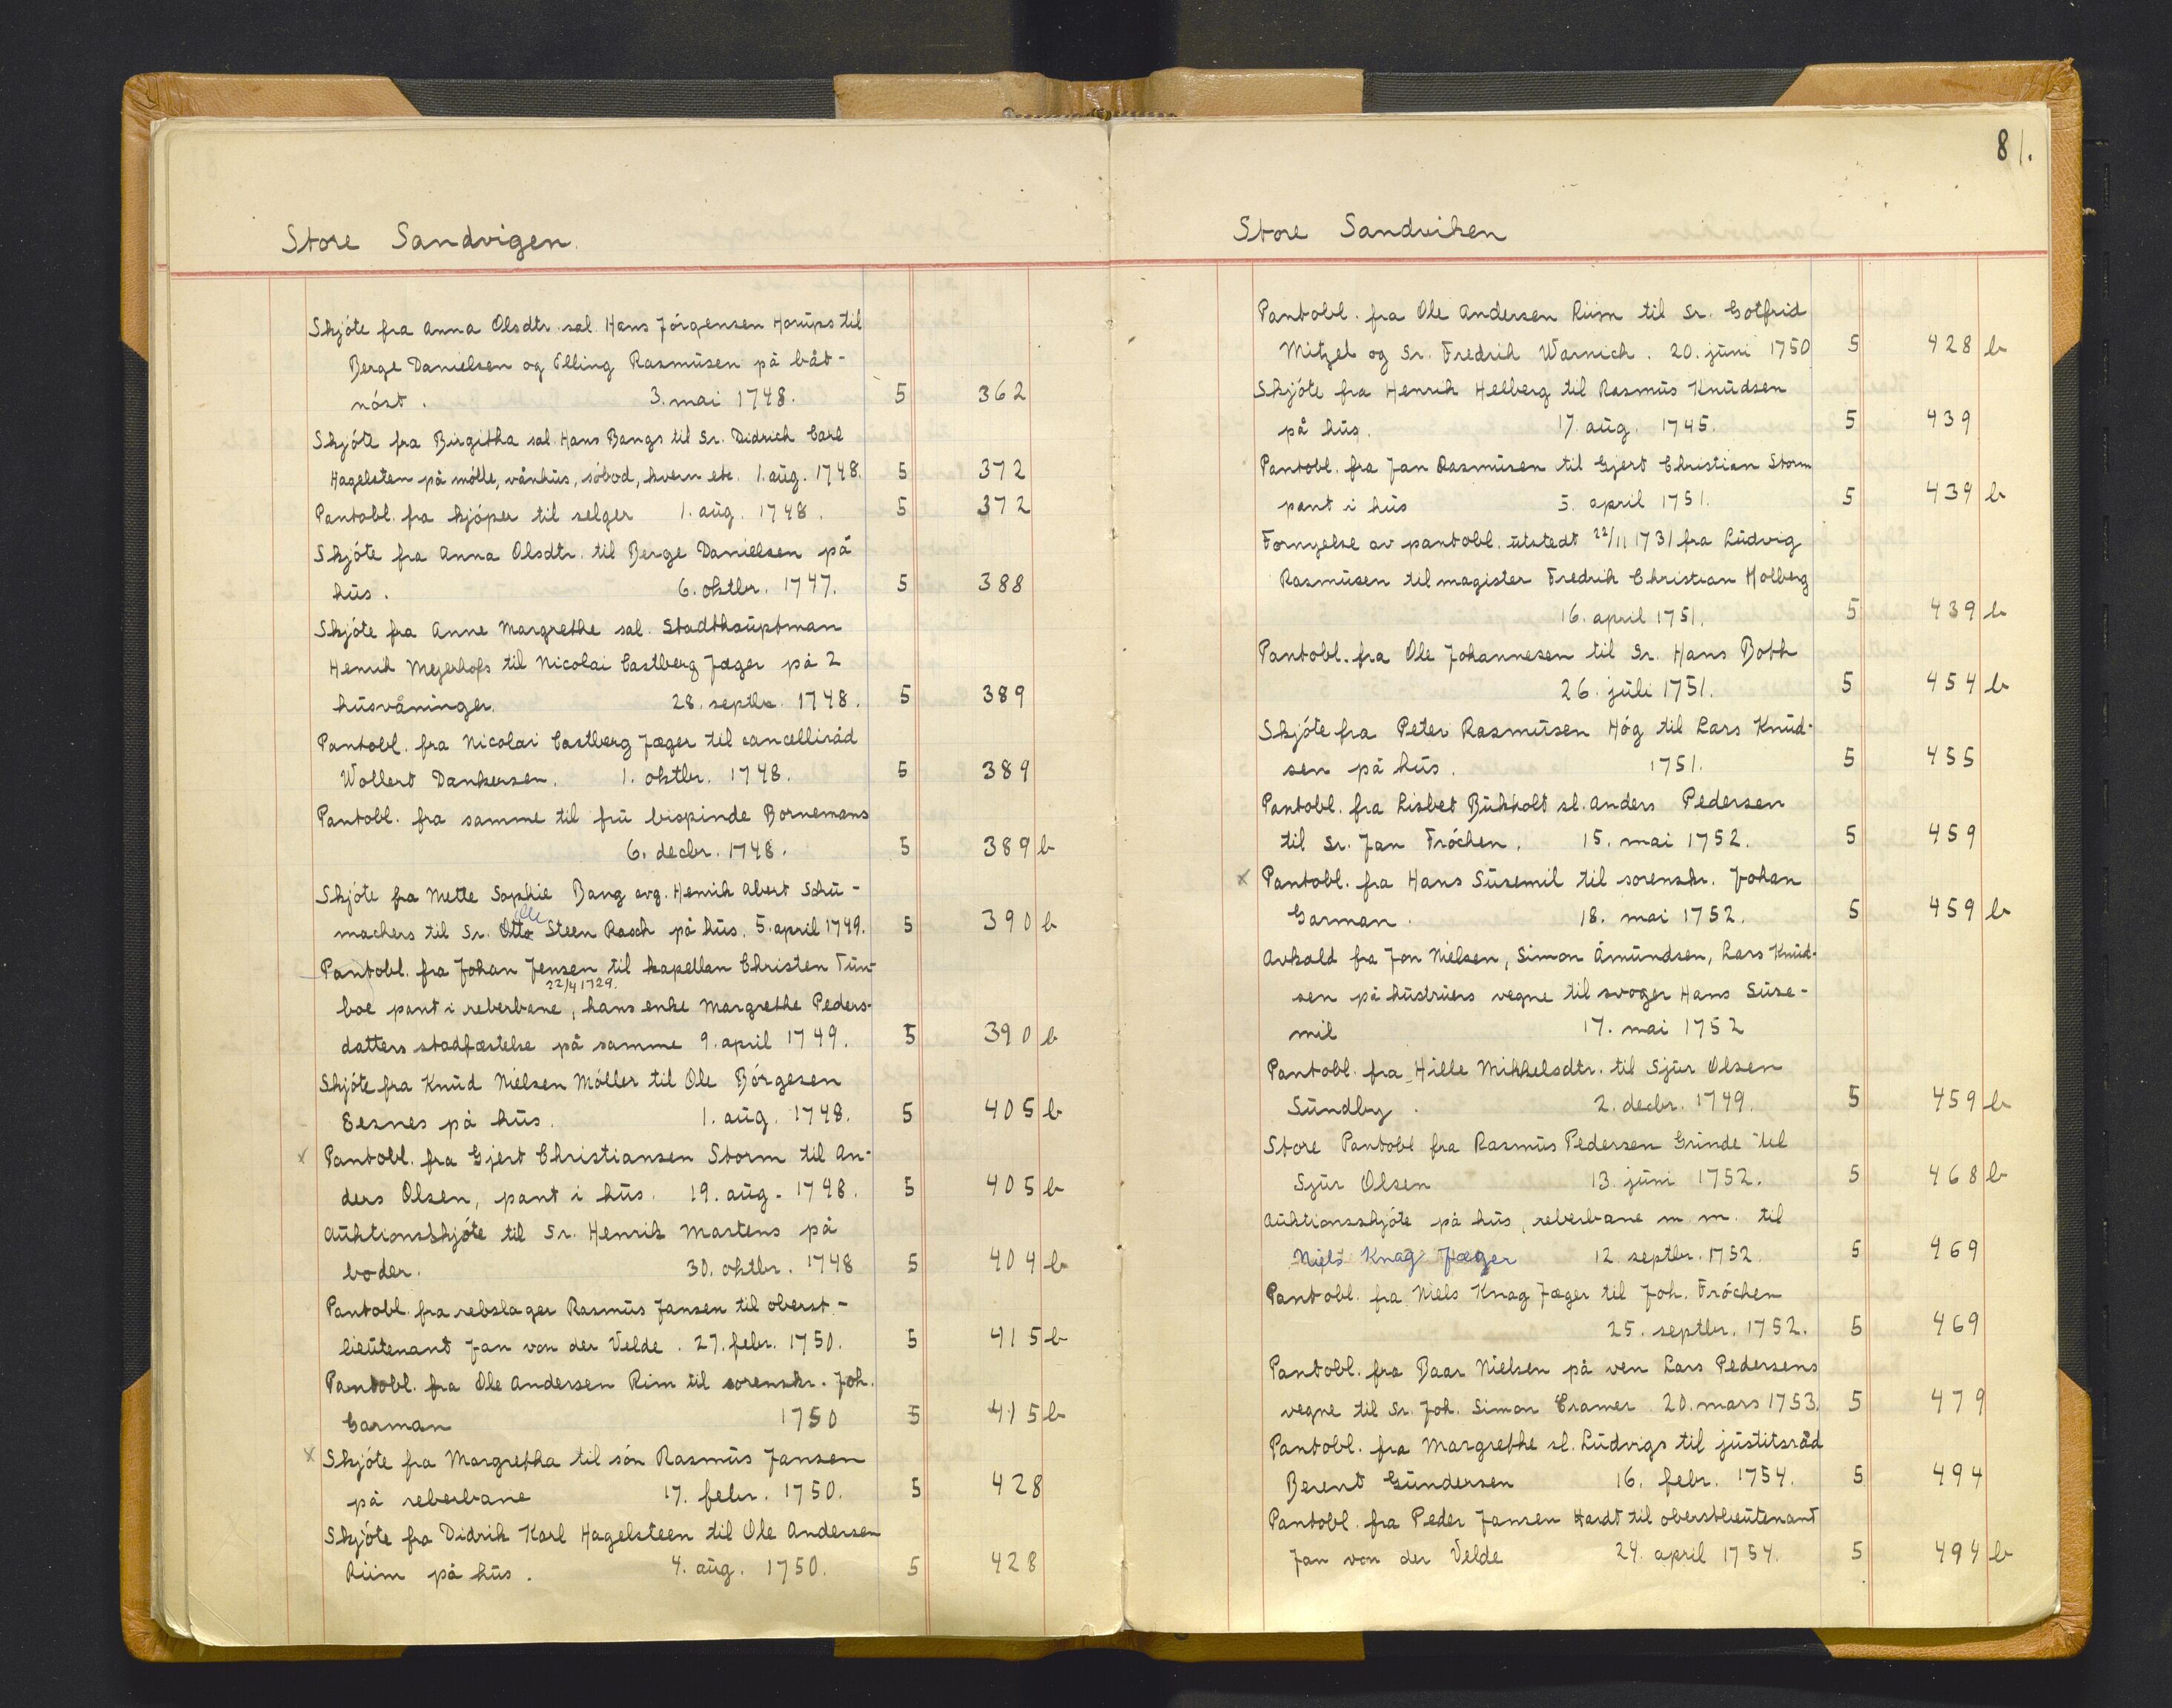 Store Sandvigen.
Skjöte fra Anna Olsdtr. sal. Hans Jörgensen Horups til
Berge Danielsen og Elling Rasmusen på båt-
nöst. 3. mai 1748. 5 362
Skjöte fra Birgitha sal. Hans Bangs til Sr. Didrich Carl
Hagelsten på mölle, vånhus, söbod, kvern etc. 1. aug. 1748. 5 372
Pantobl. fra kjöper til selger 1. aug. 1748. 5 372
Skjöte fra Anna Olsdtr. til Berge Danielsen på
hus. 6. oktbr. 1747. 5 388
Skjöte fra Anne Margrethe sal. Stadthauptman
Henrik Mejerhofs til Nicolai Castberg Jæger på 2
husvåninger. 28. septbr. 1748. 5 389
Pantobl. fra Nicolai Castberg Jæger til cancelliråd
Wollert Dankersen. 1. oktbr. 1748. 5 389
Pantobl. fra samme til fru bispinde Bornemans
6. decbr. 1748. 5 389 b
Skjöte fra Mette Sophie Bang avg. Henrik Abert Schu-
machers til Sr. Otto Ole Steen Rasch på hus. 5. april 1749. 5 390 b
Pantobl. fra Johan Jensen til kapellan Christen Tun-
22/4 1729.
boe pant i reberbane, hans enke Margrethe Peders-
datters stadfæstelse på samme 9. april 1749. 5 390 b
Skjöte fra Knud Nielsen Möller til Ole Börgesen
Eesnes på hus. 1. aug. 1748. 5 405 b
x Pantobl. fra Gjert Christiansen Storm til An-
ders Olsen, pant i hus. 19. aug. 1748. 5 405 b
Auktionsskjöte til Sr. Henrik Martens på
boder. 30. oktbr. 1748 5 404 b
Pantobl. fra rebslager Rasmus Jansen til oberst-
lieutenant Jan von der Velde. 27. febr. 1750. 5 415 b
Pantobl. fra Ole Andersen Rim til sorenskr. Joh.
Garman 1750 5 415 b
x Skjöte fra Margretha til sön Rasmus Jansen
på reberbane 17. febr. 1750. 5 428
Skjöte fra Didrik Karl Hagelsteen til Ole Andersen
Riim på hus. 4. aug. 1750. 5 428
81.
Store Sandviken
Pantobl. fra Ole Andersen Riim til Sr. Gotfrid
Mitzel og Sr. Fredrik Warnich. 20. juni 1750 5 428 b
Skjöte fra Henrik Helberg til Rasmus Knudsen
på hus. 17. aug. 1745. 5 439
Pantobl. fra Jan Rasmusen til Gjert Christian Storm
pant i hus 5. april 1751. 5 439 b
Fornyelse av pantobl. utstedt 22/11 1731 fra Ludvig
Rasmusen til magister Fredrik Christian Holberg
16. april 1751. 5 439 b
Pantobl. fra Ole Johannesen til Sr. Hans Both
26. juli 1751. 5 454 b
Skjöte fra Peter Rasmusen Hög til Lars Knud-
sen på hus. 1751. 5 455
Pantobl. fra Lisbet Bukholt sl. Anders Pedersen
til Sr. Jan Fröchen. 15. mai 1752. 5 459
x Pantobl. fra Hans Susemil til sorenskr. Johan
Garman. 18. mai 1752. 5 459 b
Avkald fra Jon Nielsen, Simon Amundsen, Lars Knud-
sen på hustruers vegne til svoger Hans Suse-
mil 17. mai 1752
Pantobl. fra Hille Mikkelsdtr. til Sjur Olsen
Sundby. 2. decbr. 1749. 5 459 b
Store Pantobl fra Rasmus Pedersen Grinde til
Sjur Olsen 13. juni 1752. 5 468 b
Auktionsskjöte på hus, reberbane m. m. til
Niels Knag Jæger 12 septbr. 1752. 5 469
Pantobl. fra Niels Knag Jæger til Joh. Fröchen
25. septbr. 1752. 5 469
Pantobl. fra Baar Nielsen på ven Lars Pedersens
vegne til Sr. Joh. Simon Cramer 20. mars 1753. 5 479
Pantobl. fra Margrethe sl. Ludvigs til justitsråd
Berent Gundersen 16. febr. 1754. 5 494
Pantobl. fra Peder Jansen Hardt til oberstlieutenant
Jan von der Velde 24. april 1754. 5 494 b